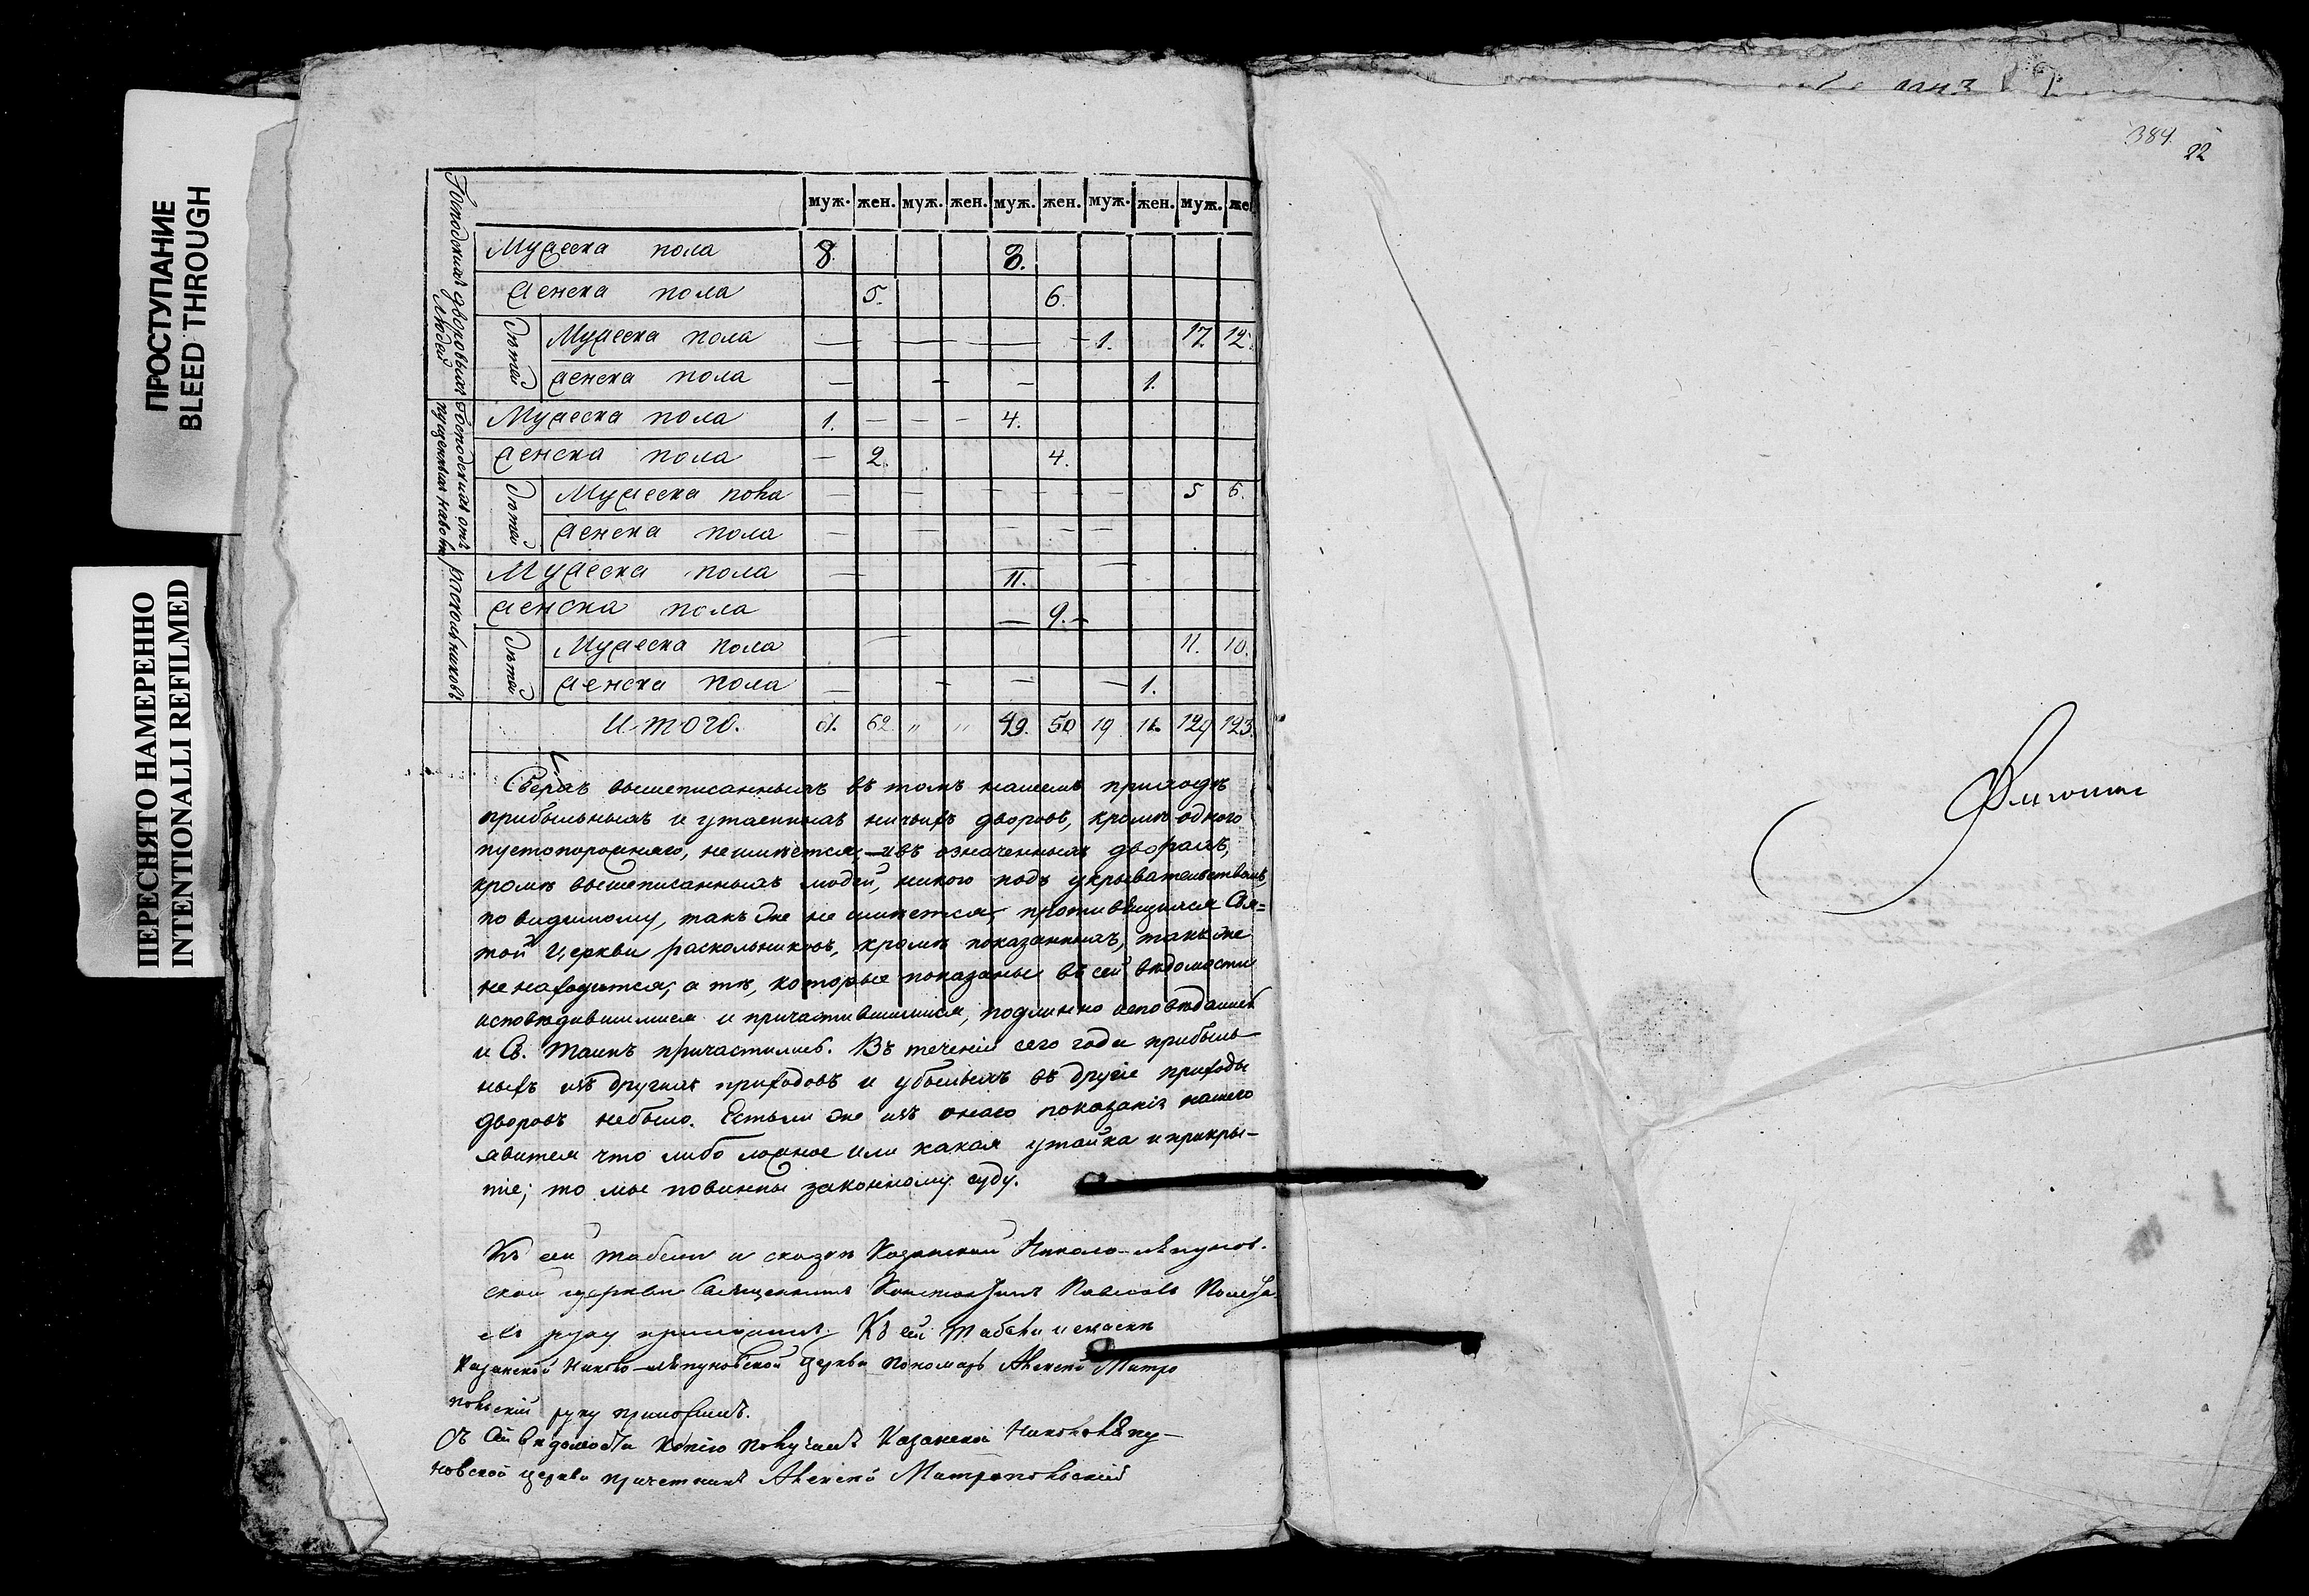 ПРОСТУПАНИЕ
BLEED THROUGH
ПЕРЕСНЯТО НАМЕРЕННО
INTENTIONALLI REFILMED
муж. жен. муж. жен. муж. жен. муж. жен. муж. же
Мужеска пола 8. 3.
Женска пола 5. 6.
Дѣтей Мужеска пола — — — — 1. 17 12
Женска пола — — — 1.
Мужеска пола 1. — — — 4.
Женска пола — 2. 4.
Дѣтей Мужеска пола — — — — — 5 6.
Женска пола — — — — —
Мужеска пола — 11. —
Женска пола — 9. —
Дѣтей Мужеска пола — 11. 10.
Женска пола — — — — 1.
раскольниковъ
Итого. 62 " " 49. 50 19 129 123.
Сверхъ вышеписанныхъ въ томъ нашемъ приходѣ
прибыльныхъ и утаенныхъ ничьихъ дворовъ, кромѣ одного
пустопорожняго, неимѣется, — ивъ означенныхъ дворахъ,
кромѣ вышеписанныхъ людей, никого подъ укрывательствомъ,
по видимому, такъ же не имѣется, противящихся Свя=
той Церкви раскольниковъ, кромѣ показанныхъ, такъ же
не находится; а тѣ, которые показаны въ сей вѣдомости
исповѣдавшимися и причастившимися, подлинно исповѣдались
и Св. Таинъ причастились. Въ теченіи сего года прибыль-
ныхъ изъ другихъ приходовъ и убылыхъ въ другіе приходы
дворовъ небыло. Естьли же изъ онаго показанія нашего
явится что либо ложное или какая утайка и прикры-
тіе; то мы повинны законному суду.
Къ сей табели и сказкѣ Казанской Николо-ляпунов-
ской церкви Священникъ Константинъ Павловъ
руку приложилъ. Къ сей табели и скаскѣ
Казанской Николо-ляпуновской церкви пономарь Алексѣй Митро
польскій руку приложилъ.
Съ сей вѣдомости копію получилъ Казанской Никололяпу-
новской церкви причетникъ Алексѣй Митропольскій
384.
22